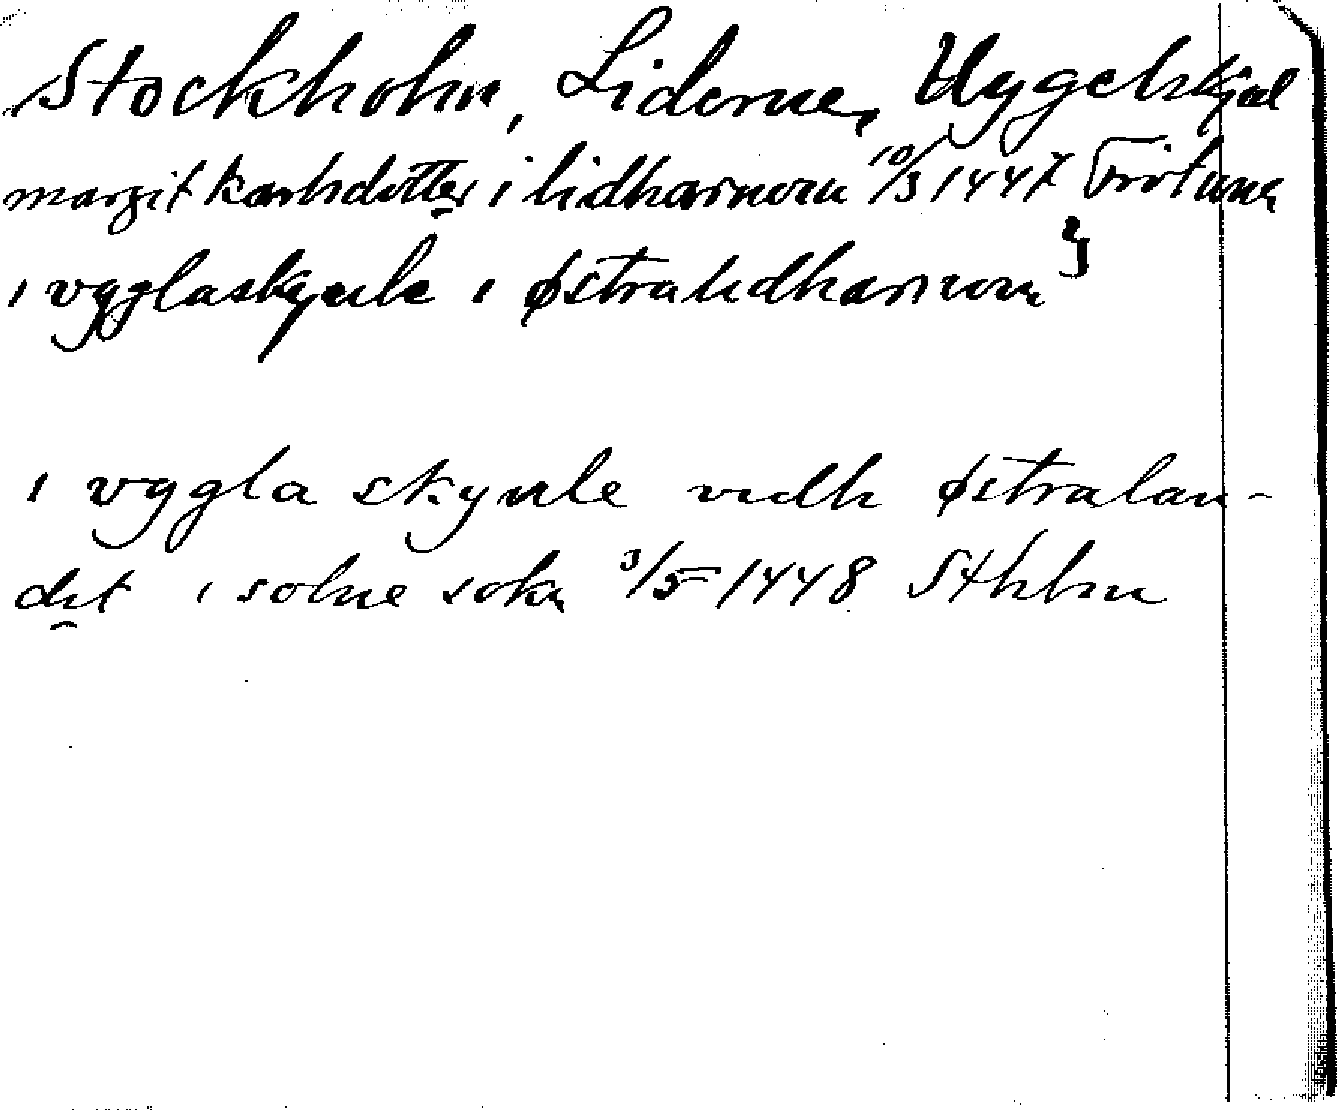 Stockholm, Liderne, Uggelskjul
margit karlsdotter i lidharnom 10/3 1447 Frötuna
i vgglaskywle i østralidharnom
i vggla skywle vidh østralan-
det i solne sokn 3/5 1448 Sthlm